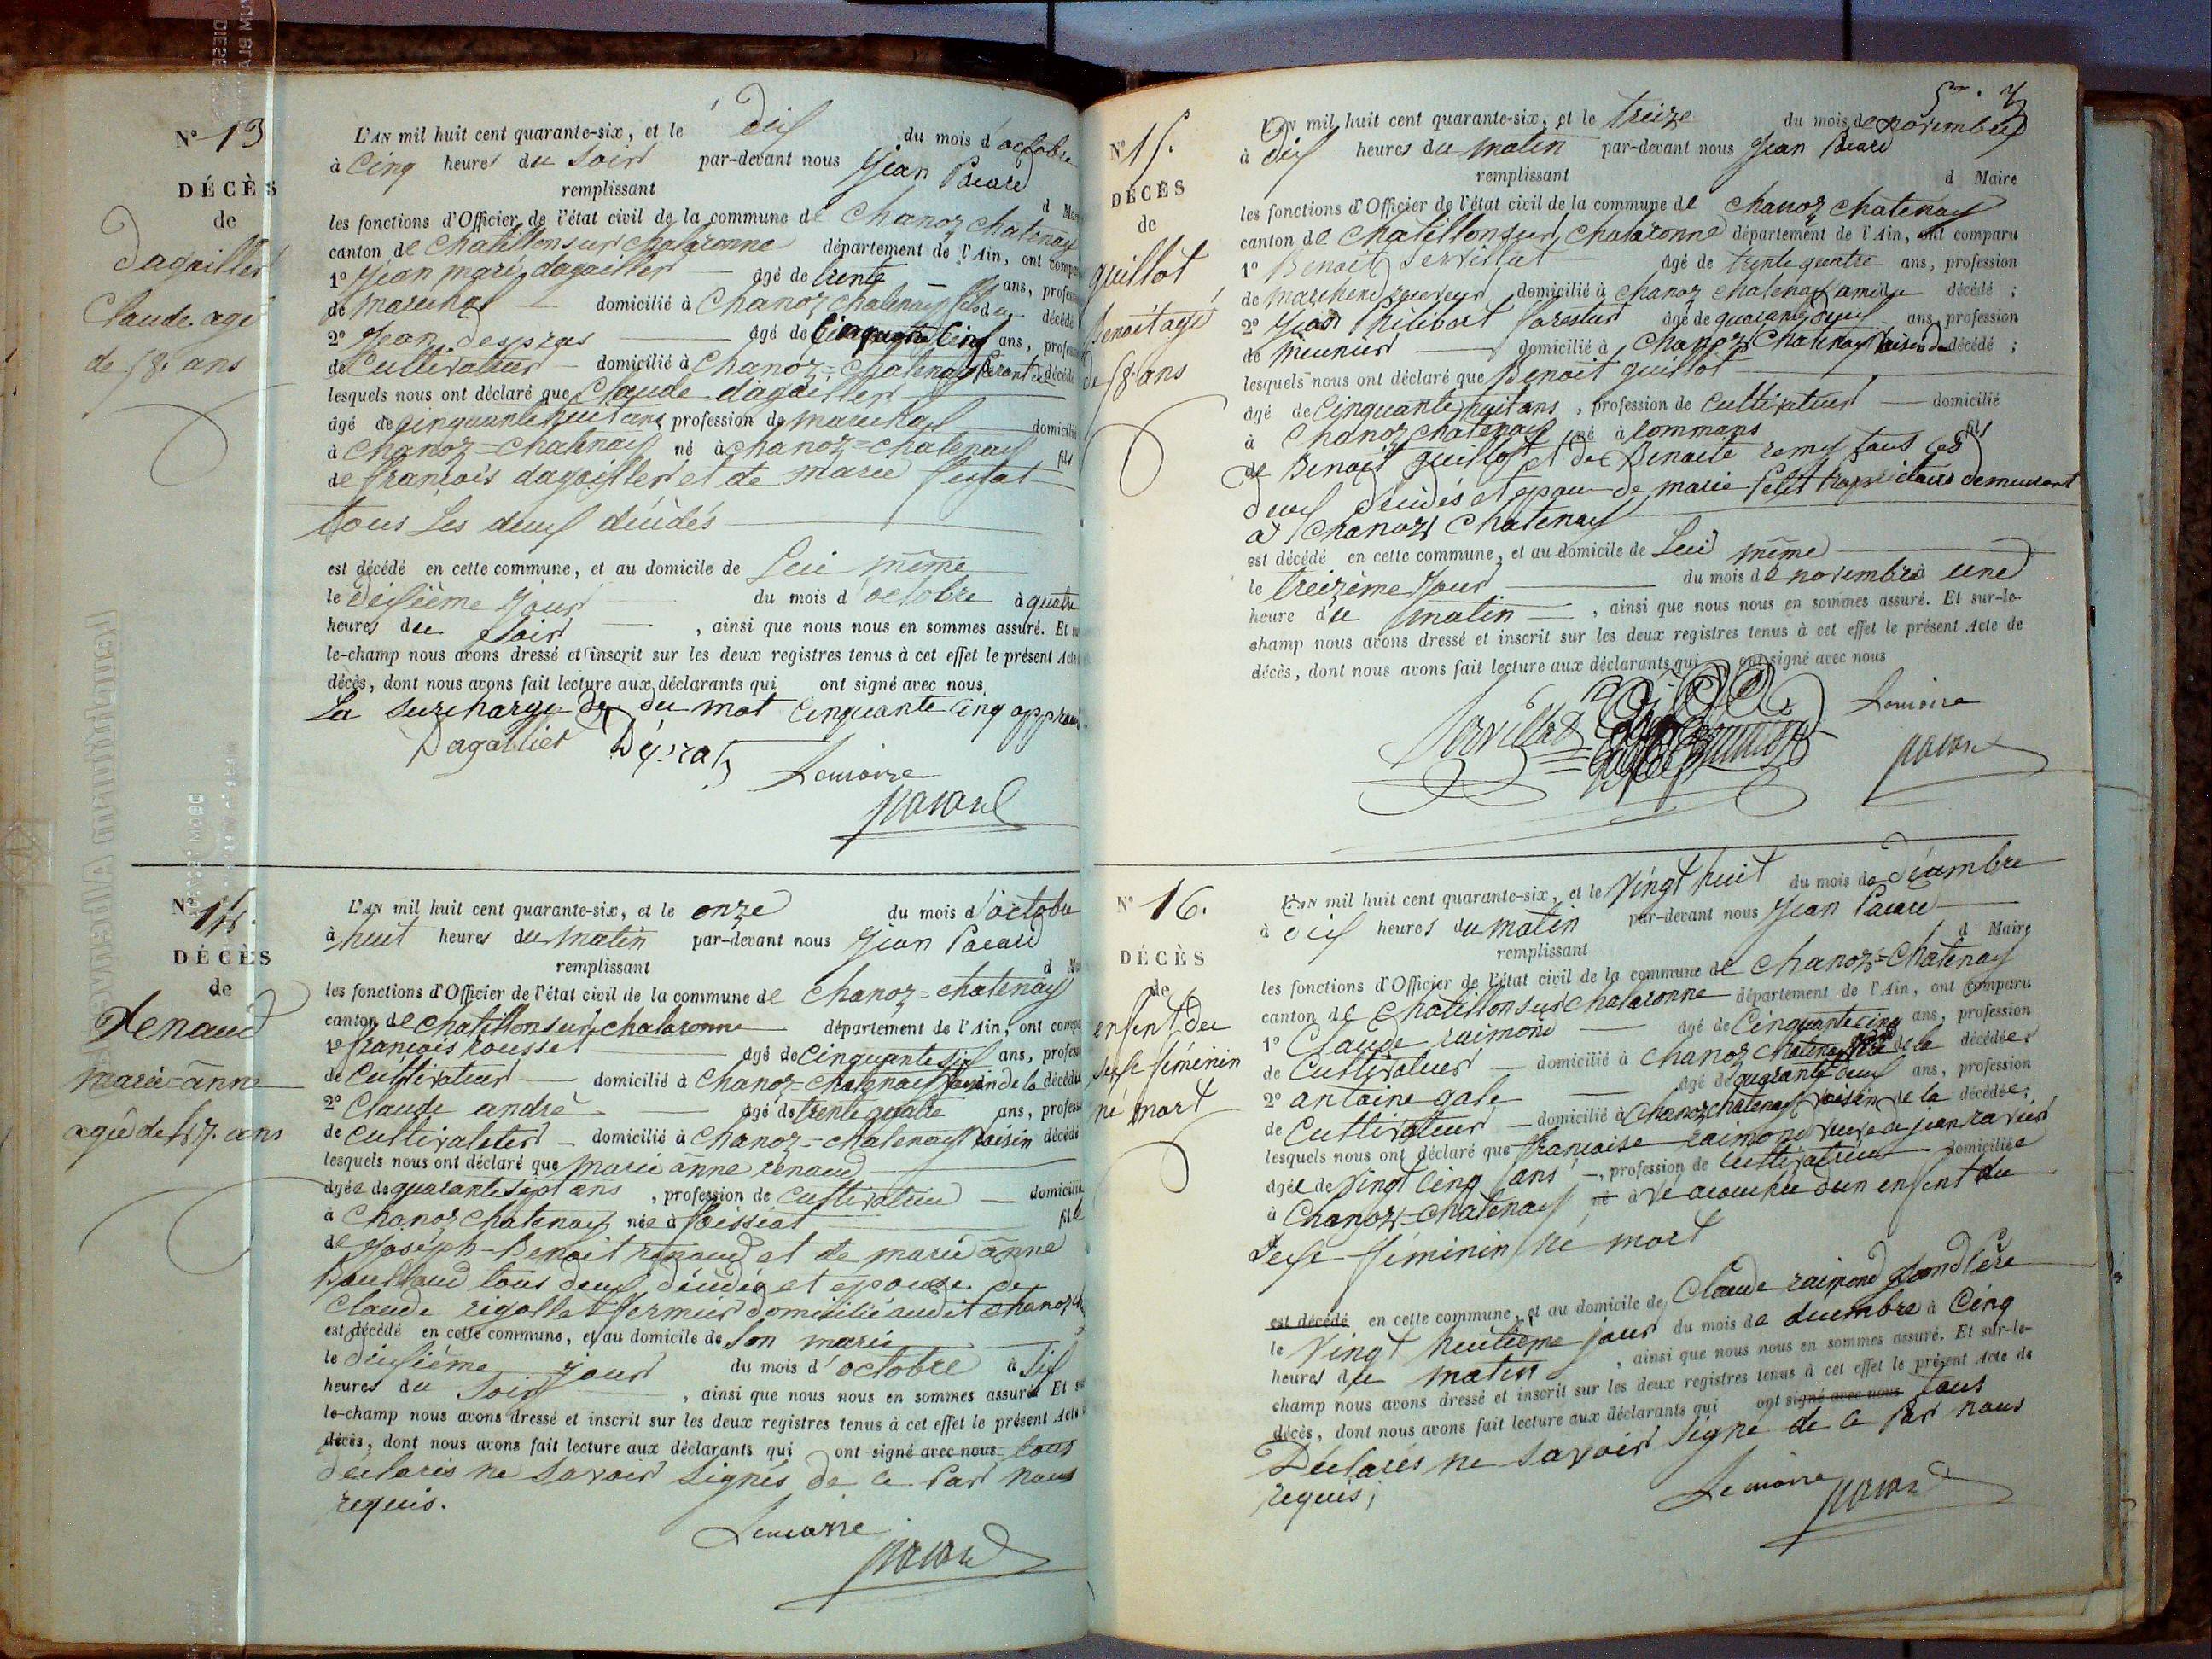 N° 13
DÉCÈS
de
Dagaillier
Claude agé
de 58. ans
L'AN mil huit cent quarante-six, et le dix du mois d'octobre
à Cinq heures du Soir par-devant nous Jean Pacard
remplissant d
les fonctions d'Officier de l'état civil de la commune de Chanoz chatenay
canton de Chatillon sur chalaronne département de l'Ain, ont
1° Jean marie dagaillier âgé de trente ans,
de marechal domicilié à Chanoz chatenay fils du décédé
2° Jean despras âgé de Cinquante Cinq ans,
de Cultivateur domicilié à Chanoz-chatenay décédé
lesquels nous ont déclaré que Claude dagaillier
âgé de cinquante huit ans profession de marechal
à chanoz-chatenay né à chanoz-chatenay fils
de françois dagaillier et de marie
tous Les deux décédés
est décédé en cette commune, et au domicile de Lui même
le dixième jour du mois d'octobre à quatre
heures du Soir, ainsi que nous nous en sommes assuré. Et
le-champ nous avons dressé et inscrit sur les deux registres tenus à cet effet le présent Acte
décès, dont nous avons fait lecture aux déclarants qui ont signé avec nous
La surcharge du mot Cinquante Cinq
Dagallier Lemoine
pacard
N° 14.
DÉCÈS
de
Renaud
marie-anne
agée de 47. ans
L'AN mil huit cent quarante-six, et le onze du mois d'octobre
à huit heures du matin par-devant nous Jean Pacard
remplissant d
les fonctions d'Officier de l'état civil de la commune de Chanoz-chatenay
canton de Chatillon sur chalaronne département de l'Ain, ont
1° françois rousset âgé de Cinquante six ans,
de Cultivateur domicilié à Chanoz-chatenay voisin de la décédée
2° Claude andré âgé de trente quatre ans,
de Cultivateur domicilié à Chanoz-chatenay voisin décédé
lesquels nous ont déclaré que marie anne renaud
âgée de quarante sept ans, profession de Cultivateur domicilié
à Chanoz chatenay née à foissiat fille
de Joseph-Benoit renaud et de marie anne
tous deux décédés et epouse de
Claude rigollet fermier domicilié audit Chanoz
est décédé en cette commune, et au domicile de Son marie
le dixième jour du mois d'octobre à Six
heures du Soir, ainsi que nous nous en sommes assuré. Et
le-champ nous avons dressé et inscrit sur les deux registres tenus à cet effet le présent Acte
décès, dont nous avons fait lecture aux déclarants qui ont signé avec nous tous
déclarés ne Savoir Signés de ce Par nous
requis.
Lemoine
pacard
N° 15.
DÉCÈS
de
guillot
Benoit agé
de 58 ans
L'AN mil huit cent quarante-six, et le treize du mois de novembre
à dix heures du matin par-devant nous Jean Pacard
remplissant d Maire
les fonctions d'Officier de l'état civil de la commune de chanoz chatenay
canton de Chatillon sur chalaronne département de l'Ain, ont comparu
1° Benoit Servillat âgé de trente quatre ans, profession
de domicilié à chanoz chatenay ami du décédé ;
2° Jean Philibert forestier âgé de ans, profession
de Meunier domicilié à Chanoz Chatenay voisin du décédé ;
lesquels nous ont déclaré que Benoit guillot
âgé de Cinquante huit ans, profession de Cultivateur domicilié
à Chanoz chatenay né à rommans fils
de Benoit guillot et de Benoite remy tous les
deux décédés et epoux de marie Petit Propriétaire demeurant
à Chanoz Chatenay
est décédé en cette commune, et au domicile de Lui même
le treizième Jour du mois de novembre à une
heure du matin, ainsi que nous nous en sommes assuré. Et sur-le-
champ nous avons dressé et inscrit sur les deux registres tenus à cet effet le présent Acte de
décès, dont nous avons fait lecture aux déclarants qui ont signé avec nous
Servillat Lemoine
pacard
N° 16.
DÉCÈS
de
enfent du
sexe féminin
né mort
L'AN mil huit cent quarante-six, et le Vingt huit du mois de décembre
à dix heures du matin par-devant nous Jean Pacard
remplissant d Maire
les fonctions d'Officier de l'état civil de la commune de Chanoz-Chatenay
canton de Chatillon sur chalaronne département de l'Ain, ont comparu
1° Claude raimond âgé de Cinquante cinq ans, profession
de Cultivateur domicilié à Chanoz chatenay de la décédée ;
2° antoine gale âgé de quarante deux ans, profession
de Cultivateur domicilié à Chanoz chatenay voisin de la décédée ;
lesquels nous ont déclaré que françoise raimond veuve de jean ravier
âgée de Vingt Cinq ans, profession de Cultivatrice domiciliée
à Chanoz-Chatenay né à acouchée d'un enfent du
Sexe féminin né mort
est décédé en cette commune, et au domicile de Claude raimond grand Père
le Vingt huitieme jour du mois de decembre à Cinq
heures du matin, ainsi que nous nous en sommes assuré. Et sur-le-
champ nous avons dressé et inscrit sur les deux registres tenus à cet effet le présent Acte de
décès, dont nous avons fait lecture aux déclarants qui ont signé avec nous tous
Déclarés ne Savoir Signé de ce Par nous
requis ;
Lemoine pacard